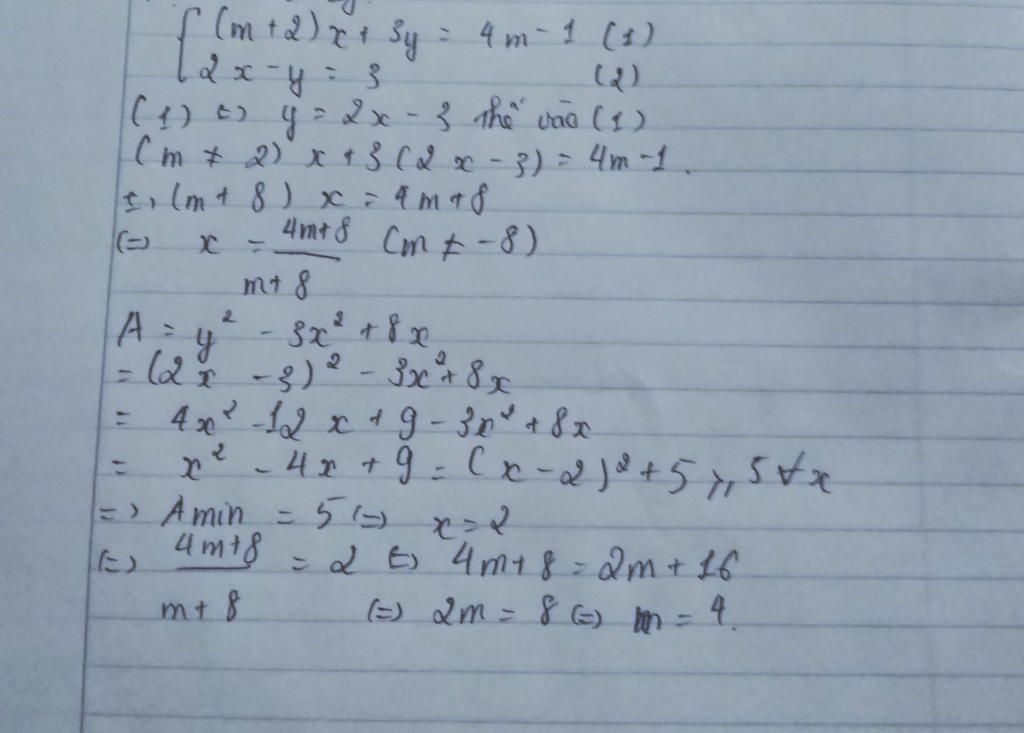 (m+2)x + 3y = 4m-1 (1)
2x-y = 3 (2)
(1) ⇔ y = 2x - 3 thế vào (1)
(m + 2) x + 3 (2x - 3) = 4m-1.
⇔ (m + 8) x = 4m+8
⇔ x = 4m+8 / m+8 (m ≠ -8)
A = y² - 3x² + 8x
= (2x - 3)² - 3x² + 8x
= 4x² - 12x + 9 - 3x² + 8x
= x² - 4x + 9 = (x-2)² + 5 ≥ 5 ∀x
=> A min = 5 ⇔ x = 2
⇔ 4m+8 / m+8 = 2 ⇔ 4m+8 = 2m + 16
⇔ 2m = 8 ⇔ m = 4.